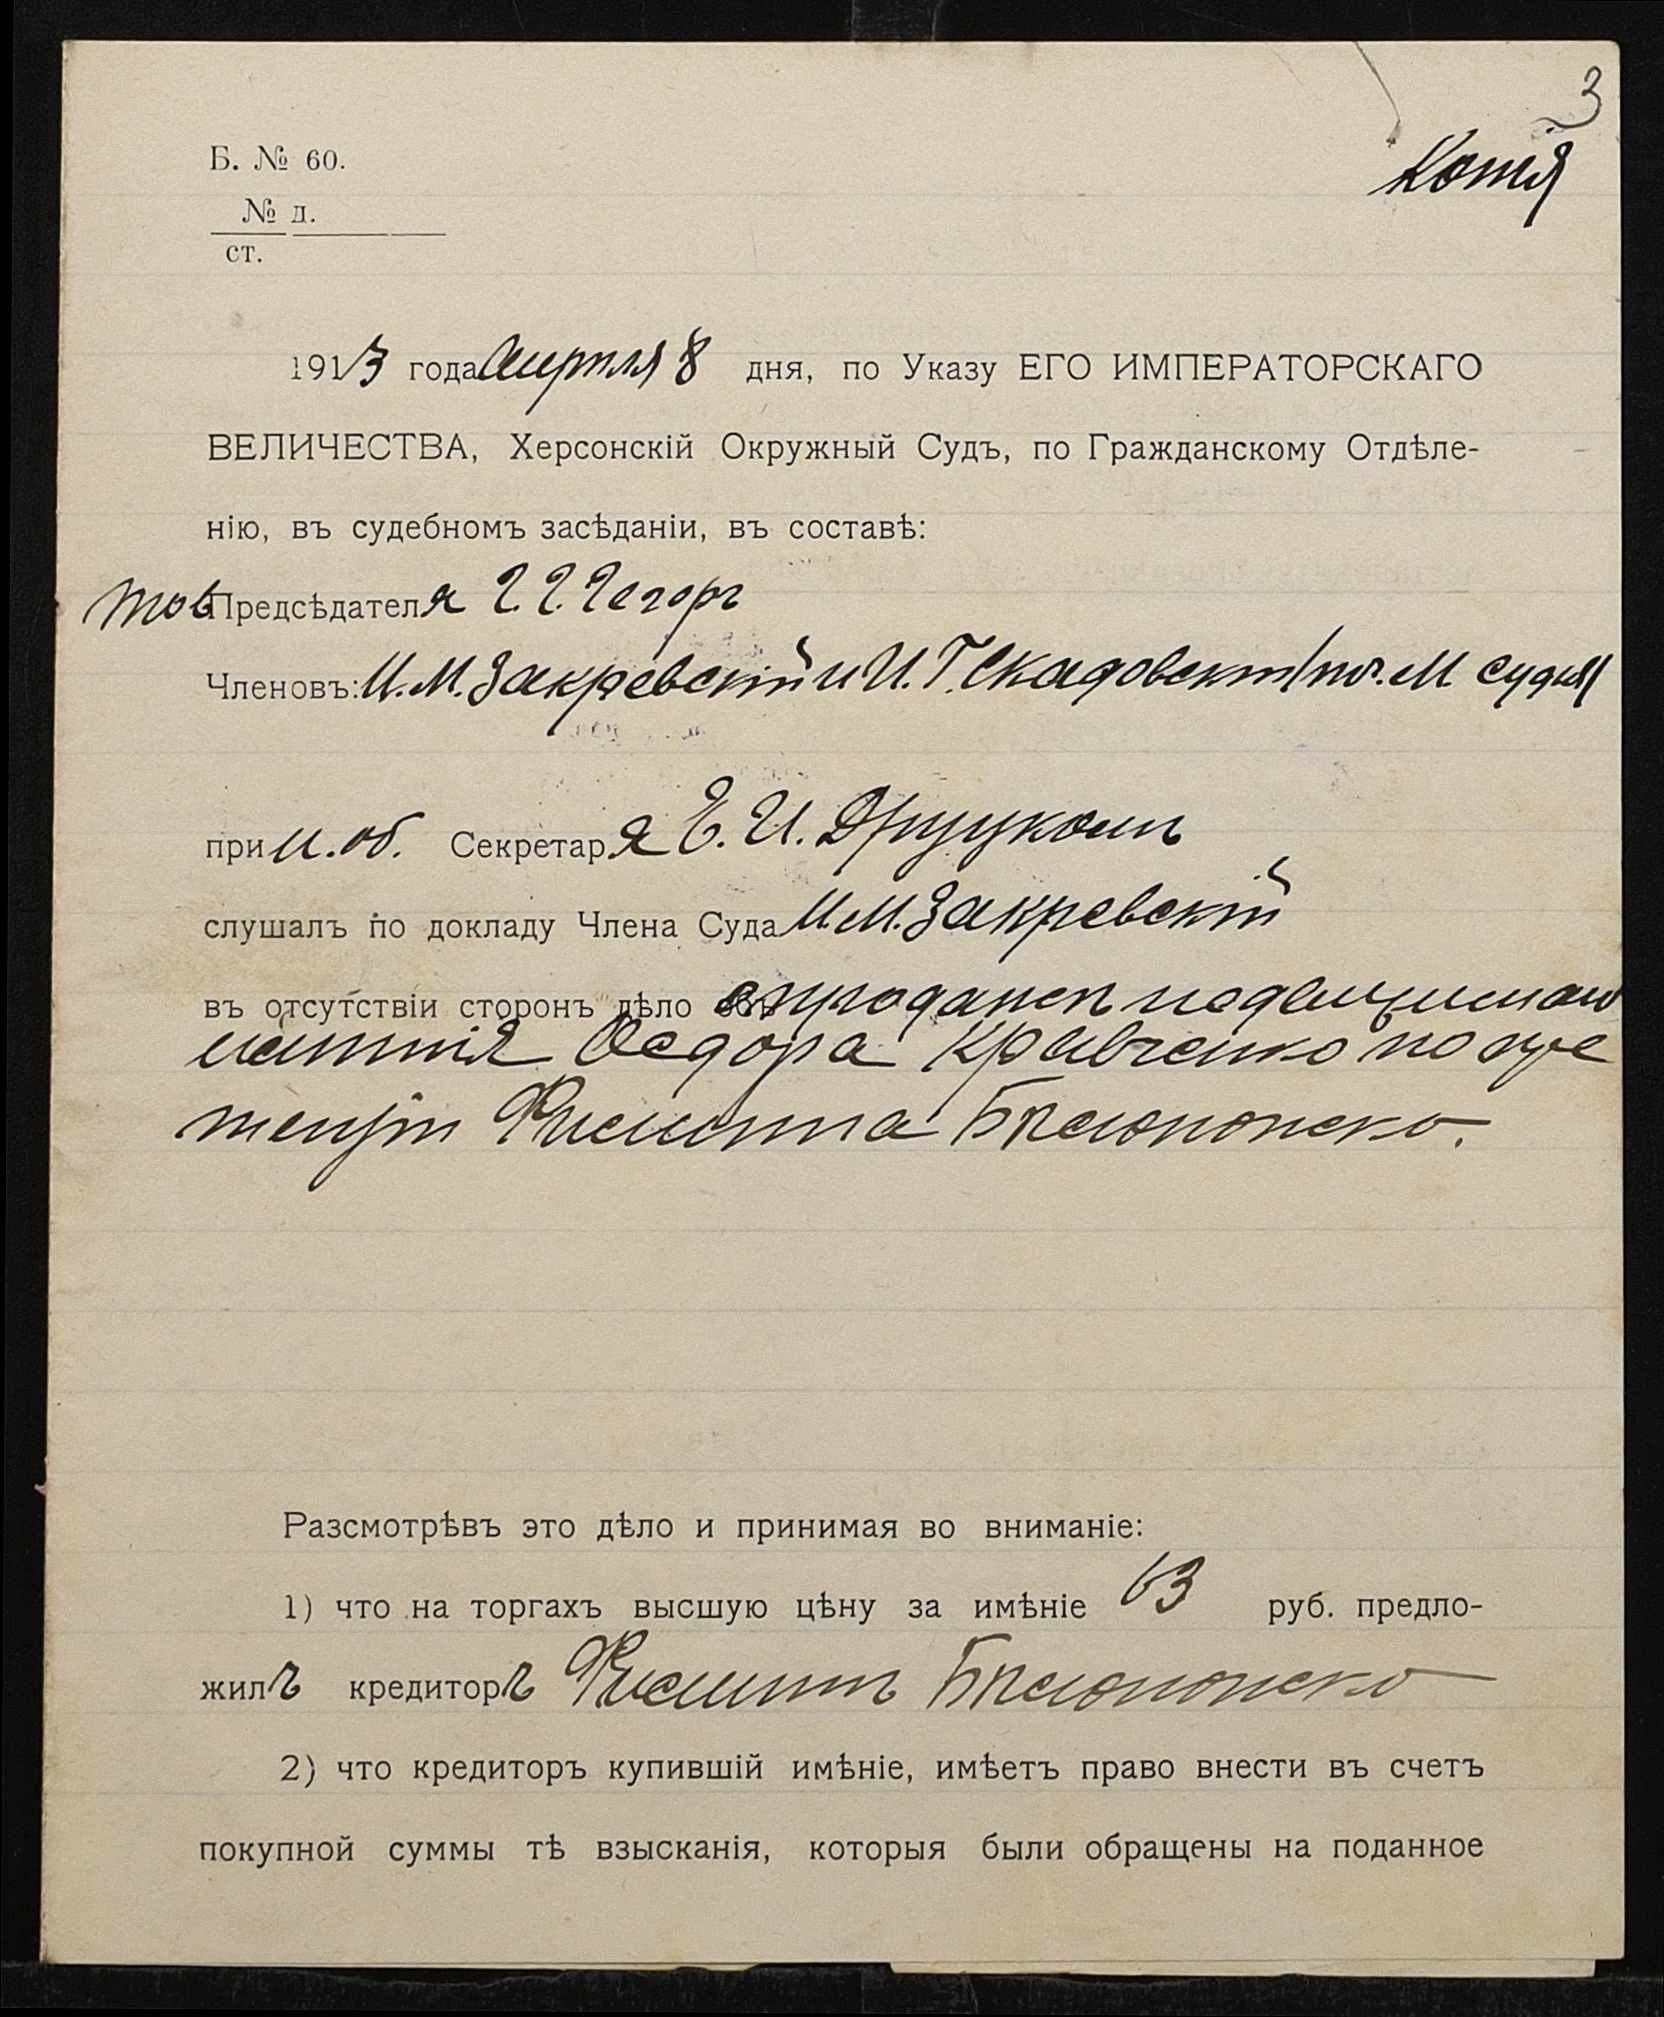 3
Копія
Б. № 60.
№ д.
ст.
1913 года Апрѣля 8 дня, по Указу ЕГО ИМПЕРАТОРСКАГО
ВЕЛИЧЕСТВА, Херсонскій Окружный Судъ, по Гражданскому Отдѣле-
нію, въ судебномъ засѣданіи, въ составѣ:
Тов Предсѣдателя Г. Г.
Членовъ: И. М. Закревскій и И. Г. Скадовскій (поч. М. судья)
при и. об. Секретаря Е. И. Друцкомъ
слушалъ по докладу Члена Суда И. М. Закревскій
въ отсутствіи сторонъ дѣло о продажѣ недвижимаго
имѣнія Ѳедора Кравченко по пре
тензіи Филиппа
Разсмотрѣвъ это дѣло и принимая во вниманіе:
1) что на торгахъ высшую цѣну за имѣніе 63 руб. предло-
жилъ кредиторъ Филиппъ
2) что кредиторъ купившій имѣніе, имѣетъ право внести въ счетъ
покупной суммы тѣ взысканія, которыя были обращены на поданное